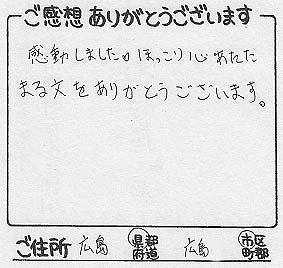 ご感想ありがとうございます
感動しました。ほっこり心あたた
まる文をありがとうございます。
ご住所 広島 県都府道 広島 市区町郡